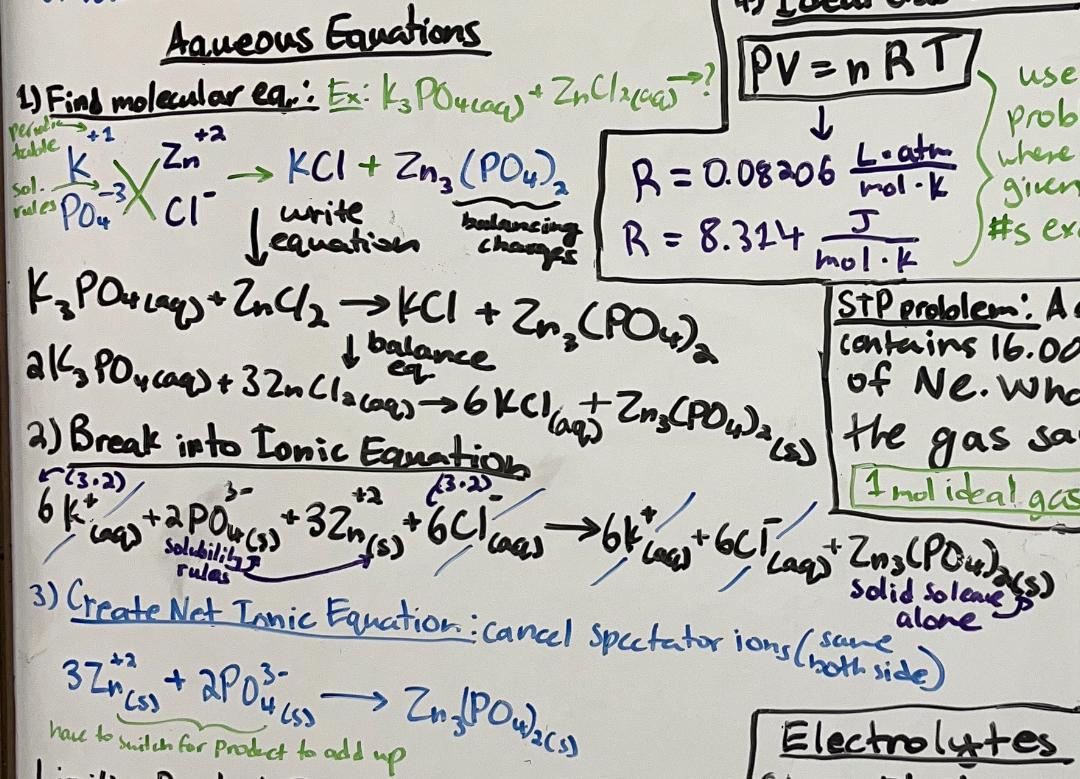 Aqueous Equations
1) Find molecular eq.: Ex: K₃PO₄(aq) + ZnCl₂(aq) → ?
periodic table → K⁺¹ Zn⁺²
sol. rules → PO₄⁻³ Cl⁻ → KCl + Zn₃(PO₄)₂
balancing charges
↓ write equation
K₃PO₄(aq) + ZnCl₂ → KCl + Zn₃(PO₄)₂
↓ balance eq.
2K₃PO₄(aq) + 3ZnCl₂(aq) → 6KCl(aq) + Zn₃(PO₄)₂(s)
2) Break into Ionic Equation
(3·2) (3·2)
6K⁺(aq) + 2PO₄³⁻(s) + 3Zn⁺²(s) + 6Cl⁻(aq) → 6K⁺(aq) + 6Cl⁻(aq) + Zn₃(PO₄)₂(s)
solubility rules
solid so leave alone
3) Create Net Ionic Equation: cancel spectator ions (same both side)
3Zn⁺²(s) + 2PO₄³⁻(s) → Zn₃(PO₄)₂(s)
have to switch for product to add up
PV = nRT
↓
R = 0.08206 L·atm/mol·K
R = 8.314 J/mol·K
use
prob
where
given
#s ex
STP problem: A
contains 16.00
of Ne. Wha
the gas sa
1 mol ideal gas
Electrolytes